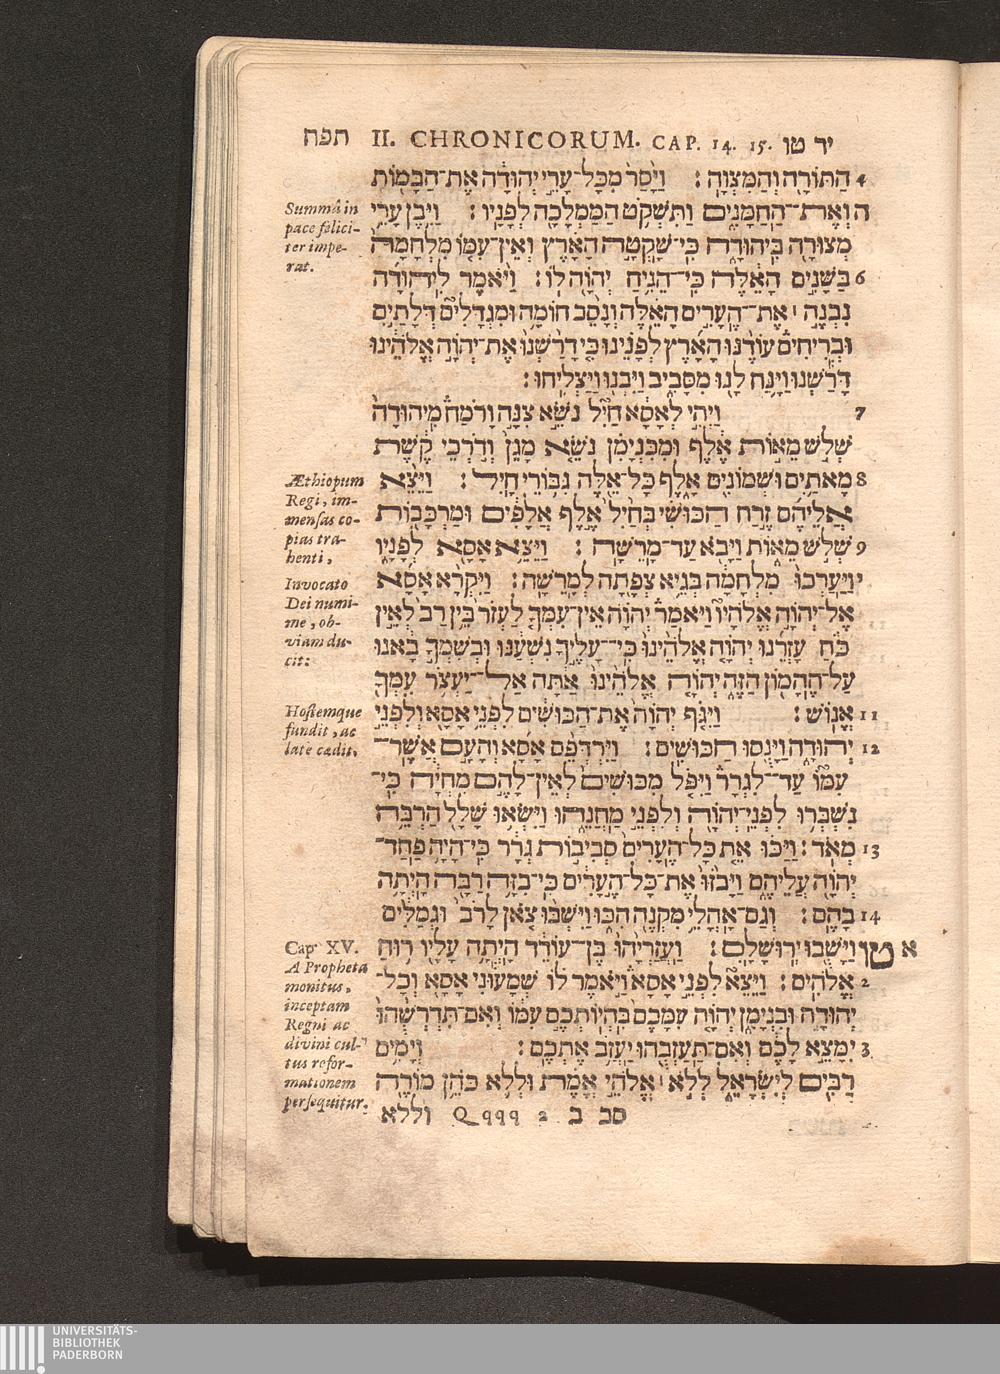 תפח II. CHRONICORUM. CAP. 14. 15. יד טו
4 הַתּוֹרָה וְהַמִּצְוָה׃ וַיָּסַר מִכָּל־עָרֵי יְהוּדָה אֶת־הַבָּמוֹת
ה וְאֶת־הַחַמָּנִים וַתִּשְׁקֹט הַמַּמְלָכָה לְפָנָיו׃ וַיִּבֶן עָרֵי
מְצוּרָה בִּיהוּדָה כִּי־שָׁקְטָה הָאָרֶץ וְאֵין־עִמּוֹ מִלְחָמָה
6 בַּשָּׁנִים הָאֵלֶּה כִּי־הֵנִיחַ יְהוָה לוֹ׃ וַיֹּאמֶר לִיהוּדָה
נִבְנֶה ׀ אֶת־הֶעָרִים הָאֵלֶּה וְנָסֵב חוֹמָה וּמִגְדָּלִים דְּלָתַיִם
וּבְרִיחִים עוֹדֶנּוּ הָאָרֶץ לְפָנֵינוּ כִּי דָרַשְׁנוּ אֶת־יְהוָה אֱלֹהֵינוּ
דָּרַשְׁנוּ וַיָּנַח לָנוּ מִסָּבִיב וַיִּבְנוּ וַיַּצְלִיחוּ׃
7 וַיְהִי לְאָסָא חַיִל נֹשֵׂא צִנָּה וָרֹמַח מִיהוּדָה
שְׁלֹשׁ מֵאוֹת אֶלֶף וּמִבִּנְיָמִן נֹשְׂאֵי מָגֵן וְדֹרְכֵי קֶשֶׁת
8 מָאתַיִם וּשְׁמוֹנִים אָלֶף כָּל־אֵלֶּה גִּבּוֹרֵי חָיִל׃ וַיֵּצֵא
אֲלֵיהֶם זֶרַח הַכּוּשִׁי בְּחַיִל אֶלֶף אֲלָפִים וּמַרְכָּבוֹת
9 שְׁלֹשׁ מֵאוֹת וַיָּבֹא עַד־מָרֵשָׁה׃ וַיֵּצֵא אָסָא לְפָנָיו
י וַיַּעַרְכוּ מִלְחָמָה בְּגֵיא צְפָתָה לְמָרֵשָׁה׃ וַיִּקְרָא אָסָא
אֶל־יְהוָה אֱלֹהָיו וַיֹּאמַר יְהוָה אֵין־עִמְּךָ לַעְזֹר בֵּין רַב לְאֵין
כֹּחַ עָזְרֵנוּ יְהוָה אֱלֹהֵינוּ כִּי־עָלֶיךָ נִשְׁעַנּוּ וּבְשִׁמְךָ בָאנוּ
עַל־הֶהָמוֹן הַזֶּה יְהוָה אֱלֹהֵינוּ אַתָּה אַל־יַעְצֹר עִמְּךָ
11 אֱנוֹשׁ׃ וַיִּגֹּף יְהוָה אֶת־הַכּוּשִׁים לִפְנֵי אָסָא וְלִפְנֵי
12 יְהוּדָה וַיָּנֻסוּ הַכּוּשִׁים׃ וַיִּרְדְּפֵם אָסָא וְהָעָם אֲשֶׁר־
עִמּוֹ עַד־לִגְרָר וַיִּפֹּל מִכּוּשִׁים לְאֵין־לָהֶם מִחְיָה כִּי־
נִשְׁבְּרוּ לִפְנֵי־יְהוָה וְלִפְנֵי מַחֲנֵהוּ וַיִּשְׂאוּ שָׁלָל הַרְבֵּה
13 מְאֹד׃ וַיַּכּוּ אֵת כָּל־הֶעָרִים סְבִיבוֹת גְּרָר כִּי־הָיָה פַחַד־
יְהוָה עֲלֵיהֶם וַיָּבֹזּוּ אֶת־כָּל־הֶעָרִים כִּי־בִזָּה רַבָּה הָיְתָה
14 בָהֶם׃ וְגַם־אָהֳלֵי מִקְנֶה הִכּוּ וַיִּשְׁבּוּ צֹאן לָרֹב וּגְמַלִּים
א טו וַיָּשֻׁבוּ יְרוּשָׁלִָם׃ וַעֲזַרְיָהוּ בֶּן־עוֹדֵד הָיְתָה עָלָיו רוּחַ
2 אֱלֹהִים׃ וַיֵּצֵא לִפְנֵי אָסָא וַיֹּאמֶר לוֹ שְׁמָעוּנִי אָסָא וְכָל־
יְהוּדָה וּבִנְיָמִן יְהוָה עִמָּכֶם בִּהְיוֹתְכֶם עִמּוֹ וְאִם־תִּדְרְשֻׁהוּ
3 יִמָּצֵא לָכֶם וְאִם־תַּעַזְבֻהוּ יַעֲזֹב אֶתְכֶם׃ וְיָמִים
רַבִּים לְיִשְׂרָאֵל לְלֹא ׀ אֱלֹהֵי אֱמֶת וּלְלֹא כֹּהֵן מוֹרֶה
סב ב Qqqq 2 וּלְלֹא
Summâ in
pace felici-
ter impe-
rat.
Æthiopum
Regi, im-
mensas co-
pias tra-
henti,
Invocato
Dei numi-
ne, ob-
viam du-
cit:
Hostemque
fundit, ac
late cædit.
Cap. XV.
A Propheta
monitus,
inceptam
Regni ac
divini cul-
tus refor-
mationem
persequitur.
UNIVERSITÄTS-
BIBLIOTHEK
PADERBORN